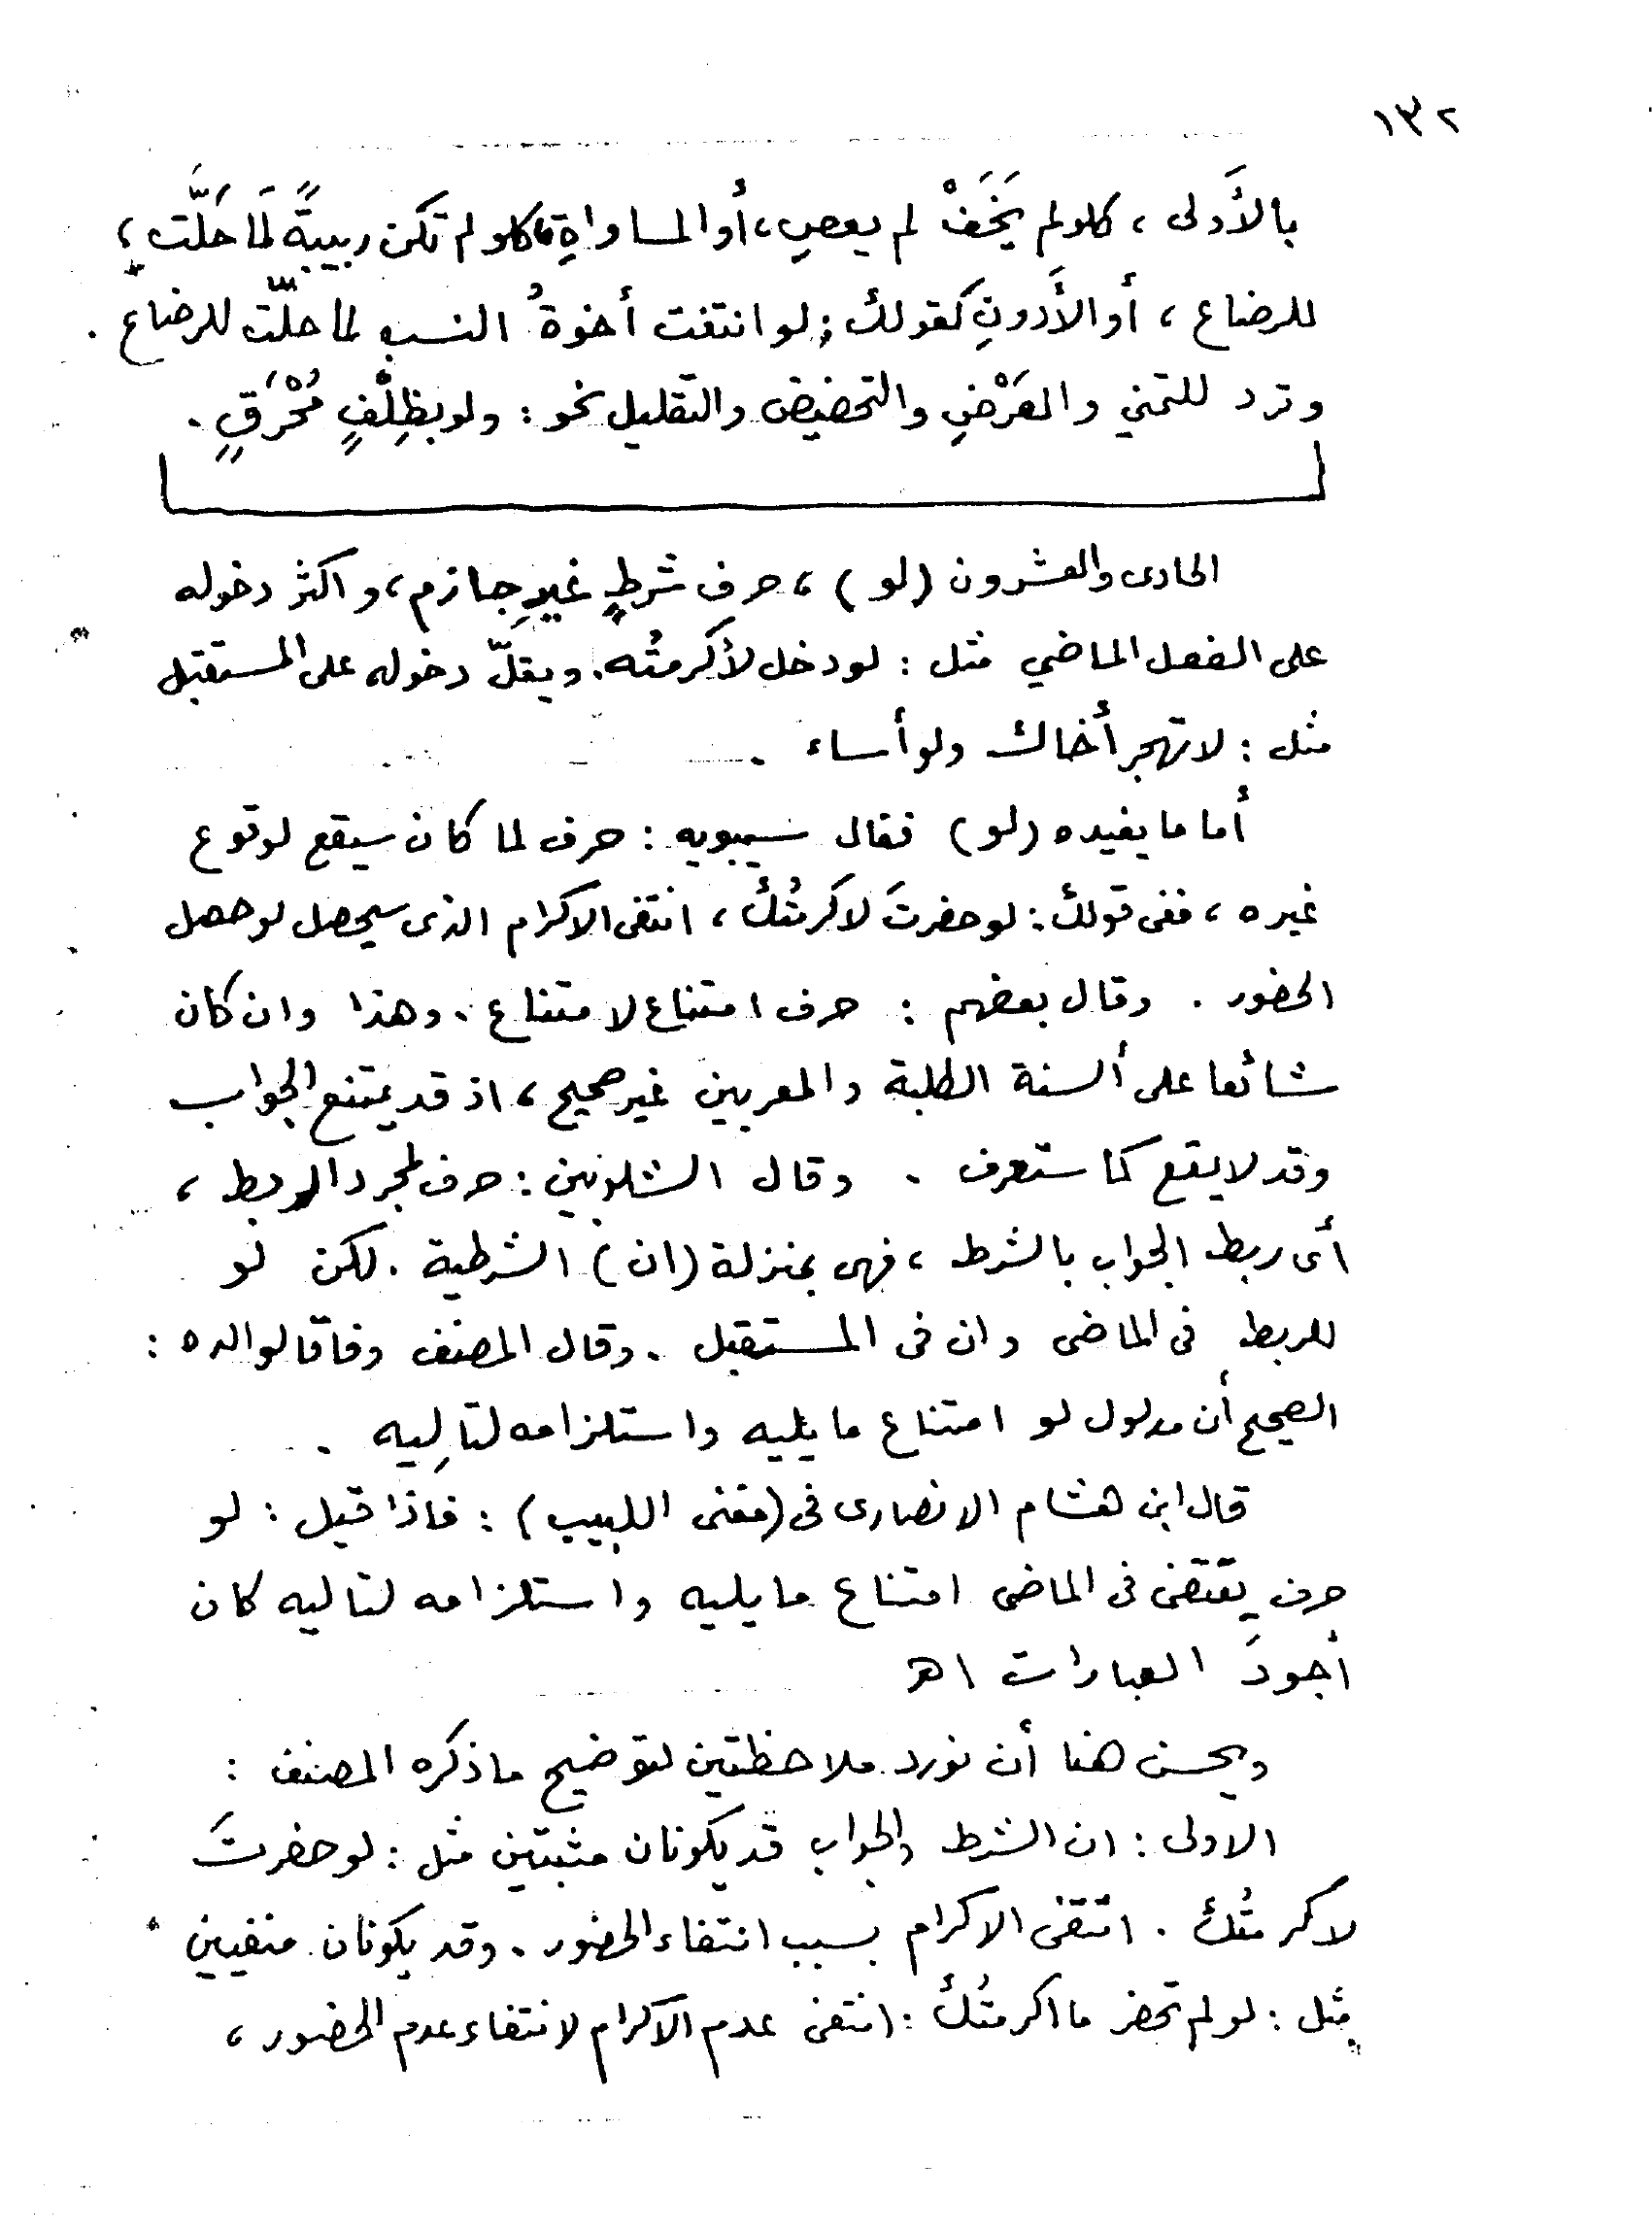 ١٣٢
بالأَولى ، كلو لم يَخَفْ لم يعصِ ، أو المساواةِ ، كلو لم تكن ربيبةً لَما حَلَّت ،
للرضاع ، أو الأَدونِ كقولك : لو انتفت أخوةُ النسب لما حلّت للرضاع .
وترد للتمني والعَرْضِ والتحضيض والتقليل نحو : ولو بظِلْفٍ مُحْرَقٍ .
الحادى والعشرون ( لو ) ، حرف شرطٍ غيرِ جازم ، واكثر دخوله
على الفعل الماضي مثل : لو دخل لأكرمتُه . ويقلّ دخوله على المستقبل
مثل : لا تهجر أخاك ولو أساء .
أما ما يفيده ( لو ) فقال سيبويه : حرف لما كان سيقع لوقوع
غيره ، ففى قولك : لو حضرتَ لاكرمتُك ، انتفى الاكرام الذى سيحصل لو حصل
الحضور . وقال بعضهم : حرف امتناع لامتناع . وهذا وان كان
شائعا على ألسنة الطلبة والمعربين غير صحيح ، اذ قد يمتنع الجواب
وقد لا يقع كما ستعرف . وقال الشلوبين : حرف لمجرد الربط ،
أى ربط الجواب بالشرط ، فهى بمنزلة ( ان ) الشرطية . لكن لو
للربط فى الماضى وان فى المستقبل . وقال المصنف وفاقا لوالده :
الصحيح أن مدلول لو امتناع ما يليه واستلزامه لتالِيه .
قال ابن هشام الانصارى فى ( مغنى اللبيب ) : فاذا قيل : لو
حرف يقتضى فى الماضى امتناع ما يليه واستلزامه لتاليه كان
أجودَ العبارات اهـ
ويحسن هنا أن نورد ملاحظتين لتوضيح ما ذكره المصنف :
الاولى : ان الشرط والجواب قد يكونان مثبتين مثل : لو حضرتَ
لاكرمتُك . انتفى الاكرام بسبب انتفاء الحضور . وقد يكونان منفيين
مثل : لو لم تحضر ما اكرمتُك : انتفى عدم الاكرام لانتفاء عدم الحضور ،